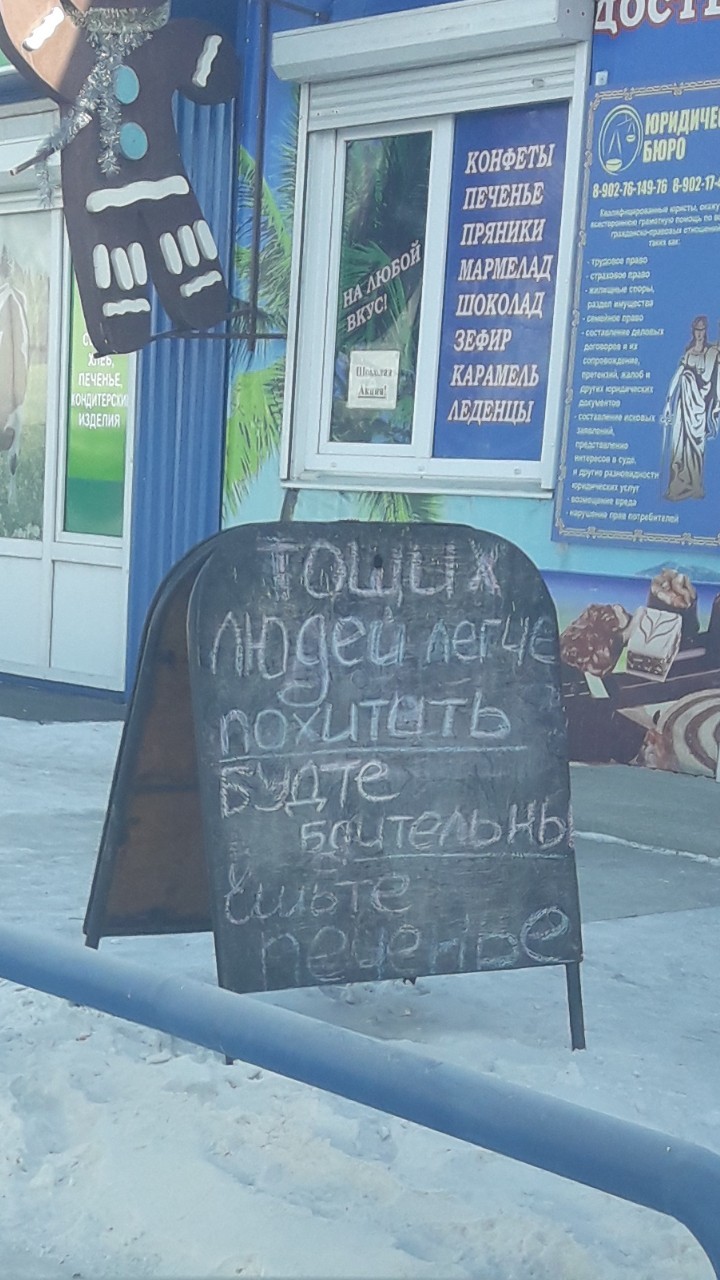 ДОСТ
КОНФЕТЫ
ПЕЧЕНЬЕ
ПРЯНИКИ
МАРМЕЛАД
ШОКОЛАД
ЗЕФИР
КАРАМЕЛЬ
ЛЕДЕНЦЫ
НА ЛЮБОЙ
ВКУС!
Акция!
ЮРИДИЧЕС
БЮРО
8-902-76-149-76 8-902-17-
Квалифицированные юристы, окажу
всестороннюю грамотную помощь по в
гражданско-правовых отношени
таких как:
- трудовое право
- страховое право
- жилищные споры,
раздел имущества
- семейное право
- составление деловых
договоров и их
сопровождение,
претензий, жалоб и
других юридических
документов
- составление исковых
заявлений,
представление
интересов в суде.
и другие разновидности
юридических услуг
- возмещение вреда
- нарушение прав потребителей
ХЛЕБ,
ПЕЧЕНЬЕ,
КОНДИТЕРСКИ
ИЗДЕЛИЯ
ТОЩИХ
ЛЮДЕЙ ЛЕГЧЕ
ПОХИТИТЬ
БУДТЕ
БДИТЕЛЬНЫ
ЕШЬТЕ
ПЕЧЕНЬЕ